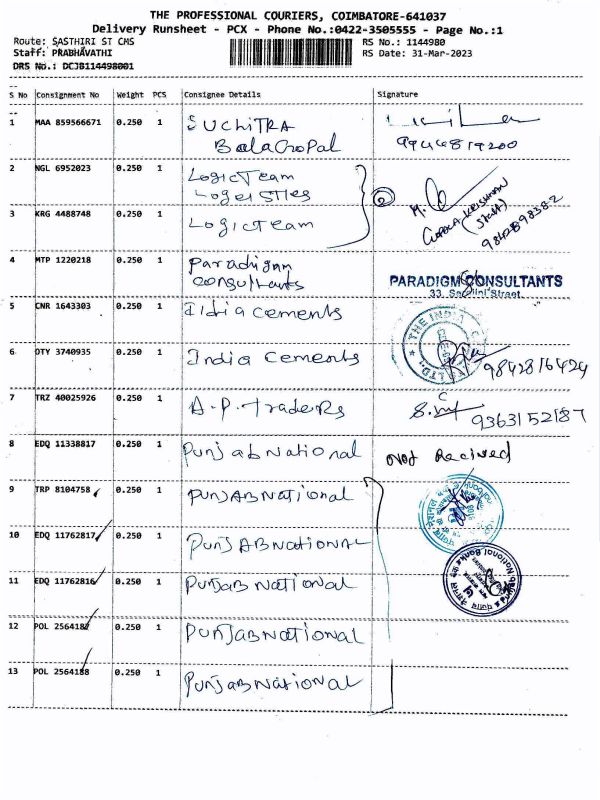 THE PROFESSIONAL COURIERS, COIMBATORE-641037
Delivery Runsheet - PCX - Phone No.:0422-3505555 - Page No.:1
Route: SASTHIRI ST CMS
Staff: PRABHAVATHI
DRS No.: DCJB114498001
RS No.: 1144980
RS Date: 31-Mar-2023
S No Consignment No Weight PCS Consignee Details Signature
1 MAA 859566671 0.250 1 SUCHITRA
BalaGopal
2 NGL 6952023 0.250 1 LogicTeam
Logeisties
2
3 KRG 4488748 0.250 1 Logicteam
M.
GOPALA KRISHNAN
(Staff)
9842898382
4 MTP 1220218 0.250 1 Paradigm
consultants
PARADIGM CONSULTANTS
33, Street
5 CNR 1643303 0.250 1 India cements
THE INDIA
6 OTY 3740935 0.250 1 India cements
9842816424
7 TRZ 40025926 0.250 1 A.P. Traders
9363152187
8 EDQ 11338817 0.250 1 Punjab National not Recived
9 TRP 8104758 0.250 1 PUNJABNational
10 EDQ 11762817 0.250 1 PUNJABNATIONAL
11 EDQ 11762816 0.250 1 PUNJAB NATIONAL
Punjab National Bank
12 POL 2564187 0.250 1 PUNJABNational
13 POL 2564188 0.250 1 PunJabNational